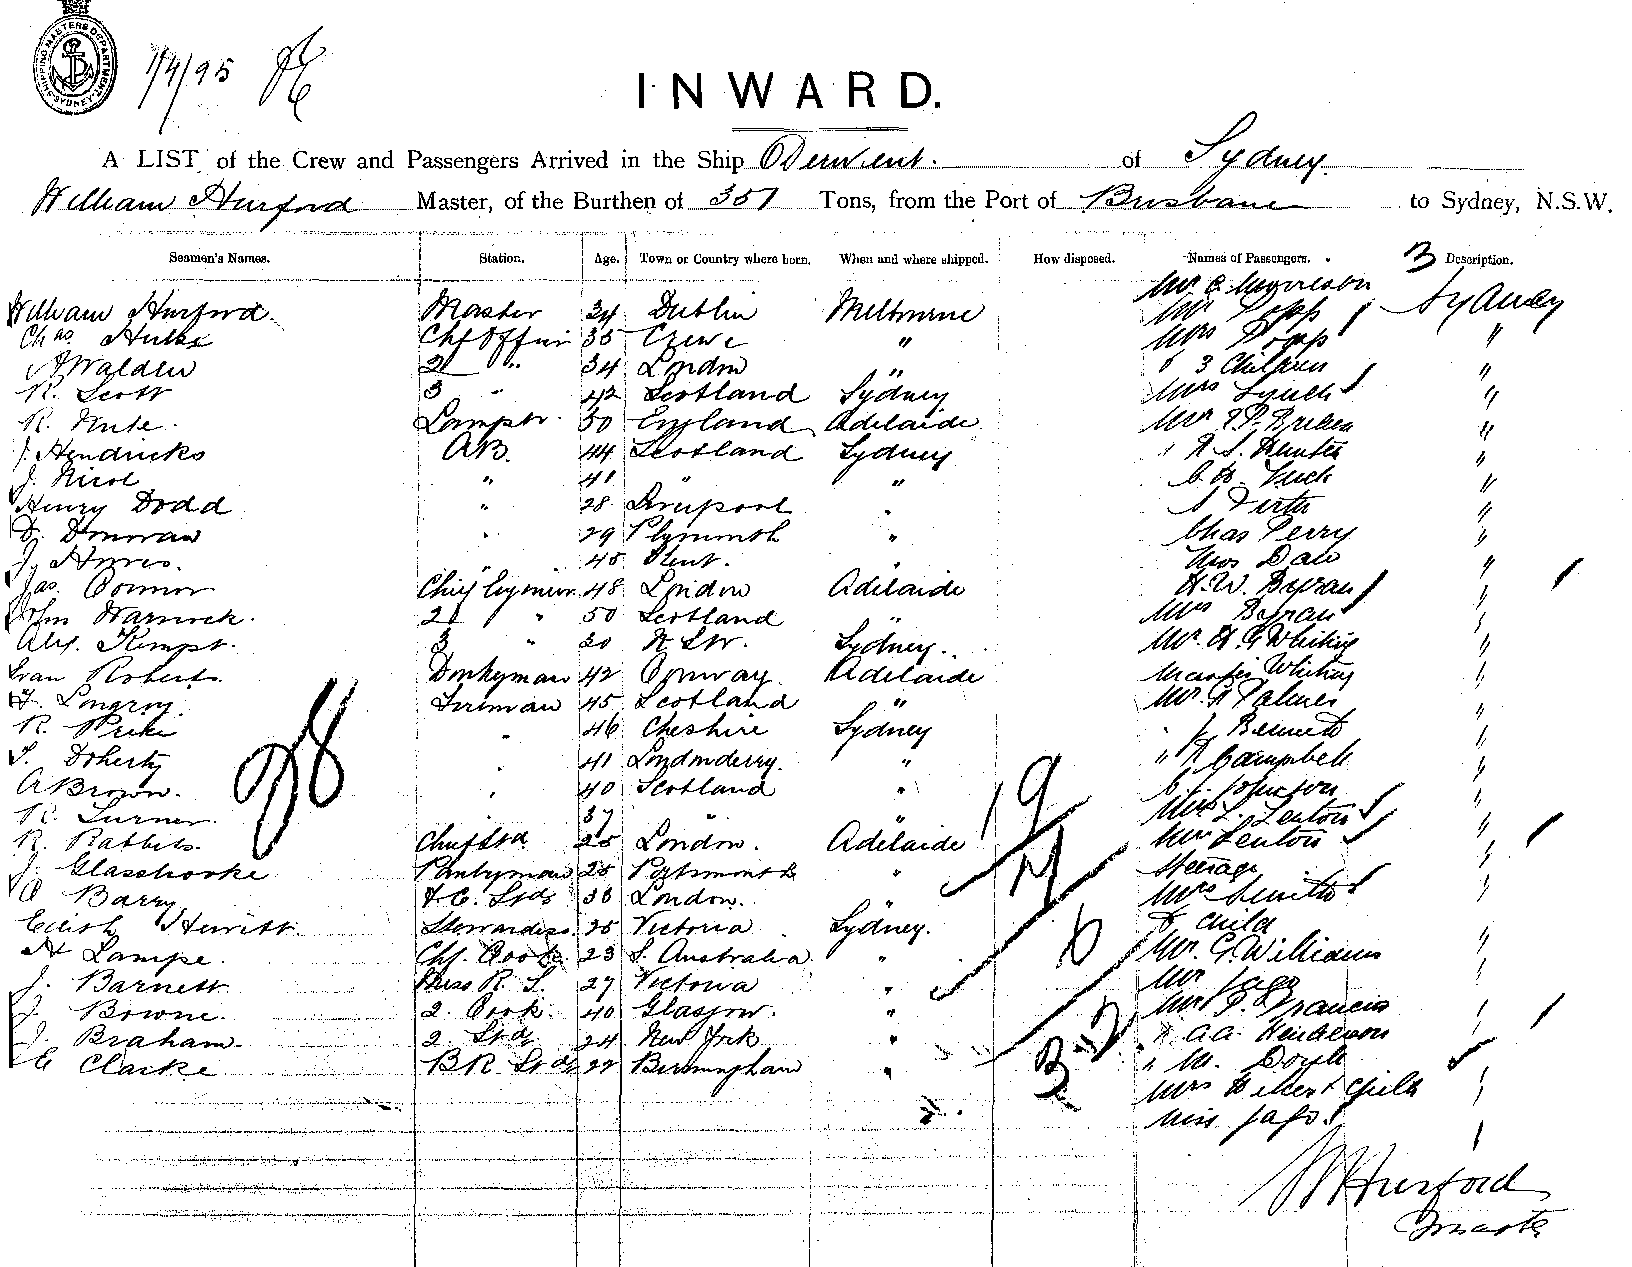 SHIPPING MASTERS DEPARTMENT SYDNEY
1/4/95
INWARD.
A LIST of the Crew and Passengers Arrived in the Ship Derwent. of Sydney
William Hurford Master, of the Burthen of 351 Tons, from the Port of Brisbane to Sydney, N.S.W.
Seamen's Names. Station. Age. Town or Country where born. When and where shipped. How disposed. Names of Passengers. Description.
William Hurford. Master 34 Dublin Melbourne Mr C. Morrison Sydney
Chas Chf Officer 35 Crewe " Mr Topp "
Walden 2 " 34 London " 3 Children "
R. Scott 3 " 42 Scotland Sydney Mrs Lynch "
R. Nute. Lampsr. 50 England Adelaide Mr "
J. Hendricks A.B. 44 Scotland Sydney " R. S. Hunter "
J. Nicol " 41 " " "
Henry Dodd " 28 Liverpool " "
D. Donovan " 29 Plymouth " Chas Perry "
J. 45 Kent. " "
Jas. Connor Chief Engineer 48 London Adelaide H. W. Byran "
John Warnock. 2 " 50 Scotland " Mrs Byran "
Alex. Kempt. 3 " 20 N.S.W. Sydney. Mr. H. G Whiting "
Evan Roberts Donkyman 42 Conway. Adelaide Master Whiting "
Fireman 45 Scotland " Mr. Palmer "
R. " 46 Cheshire Sydney " J. Bennett "
S. Doherty " 41 Londonderry. " " R Campbell "
A Brown. " 40 Scotland " C. Johnson "
R. Turner. 37 " Mr. L. Lenton "
R. Rabbits. Chief Std 25 London. Adelaide Mrs Lenton "
J. Glassbrooke Pantryman 25 Portsmouth " Steerage "
Barry F.C. Stds 38 London. Mrs Smith "
Edith Hewitt Stewardess 25 Victoria Sydney. & Child
H Lampe. Chf. Cook 23 S. Australia. " Mr. G. Williams "
J. Barnett 27 Victoria " Mr Jago "
J. Bowne. 2. Cook. 40 Glasgow. " Mr P. Francis "
J. Braham. 2. Std 24 New York " " A.A. Henderson "
C Clarke B R Std 22 Birmingham " " M. Doyle
Mrs & Child "
Miss Jago.
W Hurford
Master